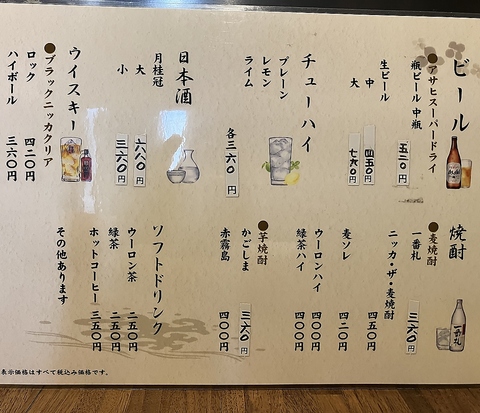 ビール
●アサヒスーパードライ
瓶ビール 中瓶 五五〇円
生ビール
中 四五〇円
大 七六〇円
チューハイ
プレーン
レモン
ライム
各三六〇円
日本酒
月桂冠
大 六八〇円
小 三六〇円
ウイスキー
●ブラックニッカクリア
ロック 四二〇円
ハイボール 三六〇円
焼酎
●麦焼酎
一番札 三六〇円
ニッカ・ザ・麦焼酎 四五〇円
麦ソレ 四二〇円
ウーロンハイ 四〇〇円
緑茶ハイ 四〇〇円
●芋焼酎
かごしま 三六〇円
赤霧島 四〇〇円
ソフトドリンク
ウーロン茶 二五〇円
緑茶 二五〇円
ホットコーヒー 三五〇円
その他あります
表示価格はすべて税込み価格です。
一番札